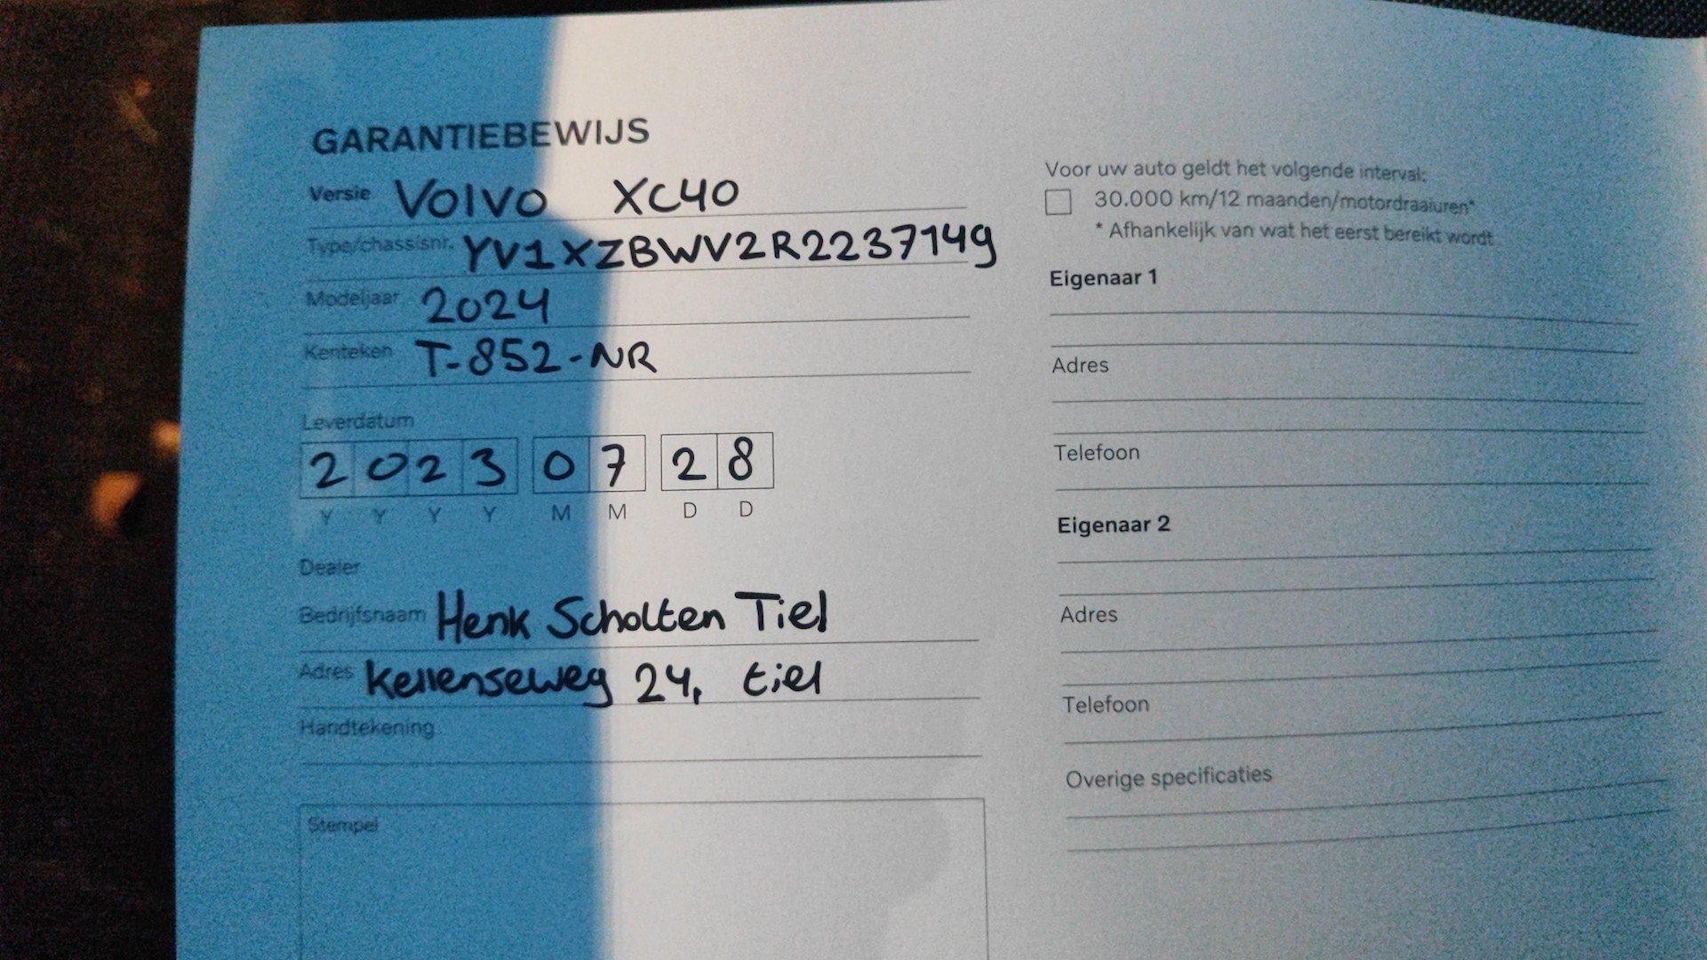 GARANTIEBEWIJS
Versie Volvo XC40
Type/chassisnr. YV1XZBWV2R2237149
Modeljaar 2024
Kenteken T-852-NR
Leverdatum
2 0 2 3 0 7 2 8
Y Y Y Y M M D D
Dealer
Bedrijfsnaam Henk Scholten Tiel
Adres Kellenseweg 24, tiel
Handtekening
Stempel
Voor uw auto geldt het volgende interval:
30.000 km/12 maanden/motordraaiuren*
* Afhankelijk van wat het eerst bereikt wordt
Eigenaar 1
Adres
Telefoon
Eigenaar 2
Adres
Telefoon
Overige specificaties